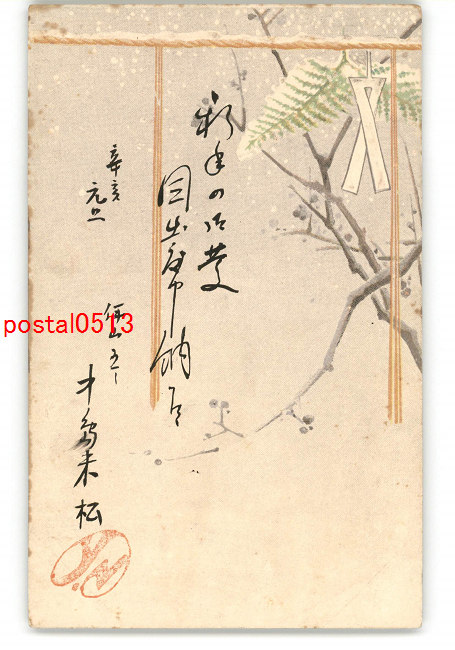 新年の御慶
目出度申納候
辛亥
元旦
中島来松
postal0513